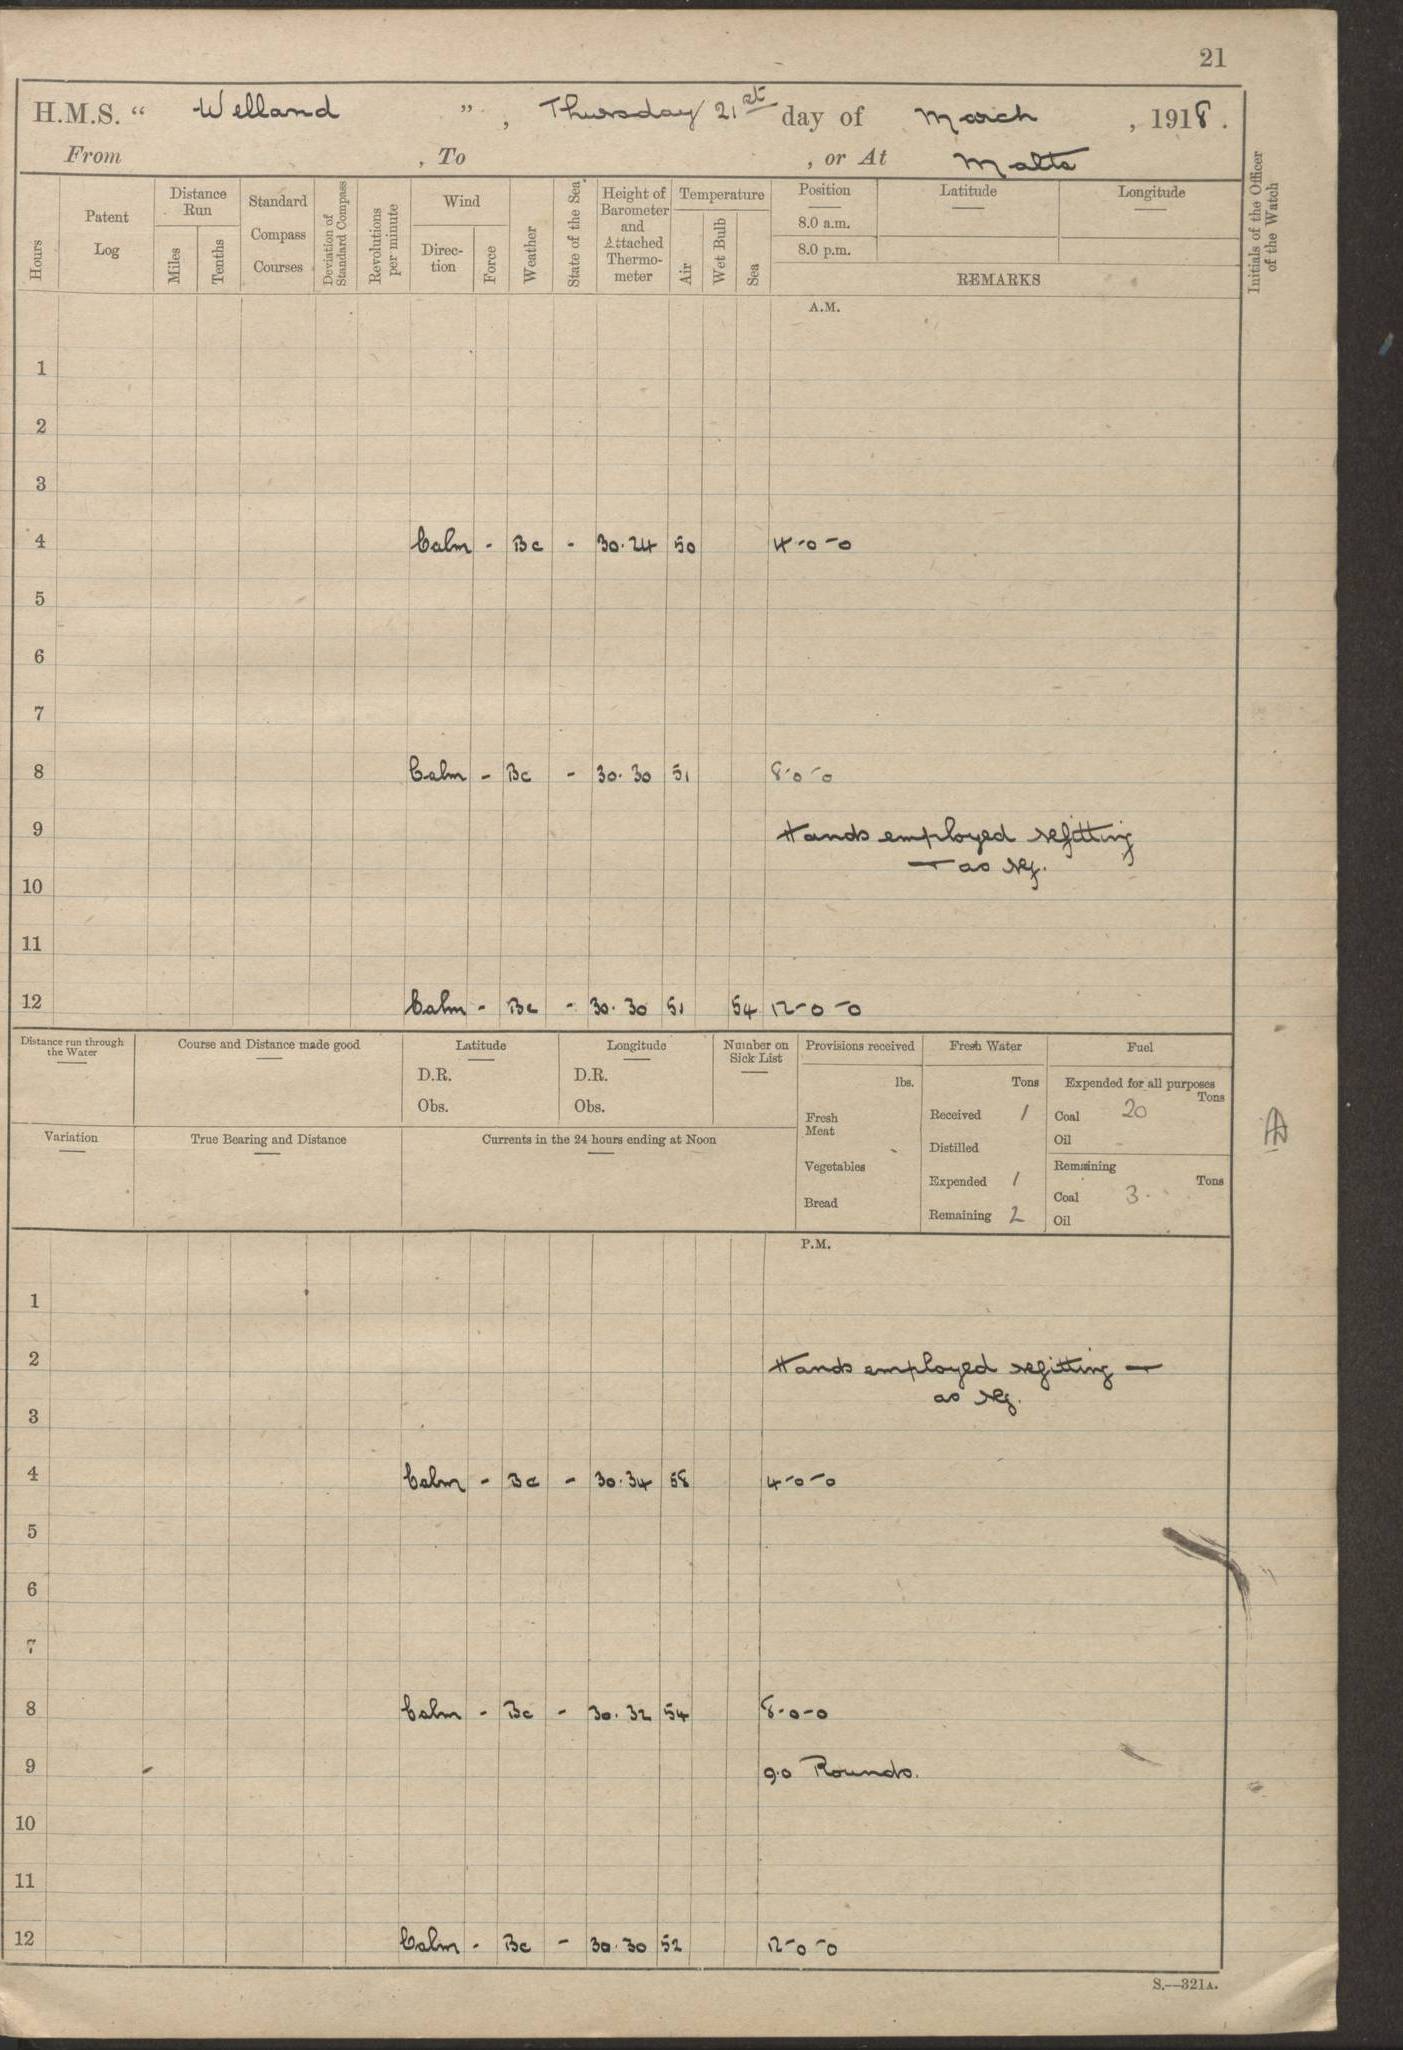 21
H.M.S. “ Welland ” , Thursday 21st day of March , 1918 .
From , To , or At Malta
Hours
Patent Log
Distance Run
Miles
Tenths
Standard Compass Courses
Deviation of Standard Compass
Revolutions per minute
Wind
Direction
Force
Weather
State of the Sea
Height of Barometer and Attached Thermometer
Temperature
Air
Wet Bulb
Sea
Position Latitude Longitude
8.0 a.m.
8.0 p.m.
REMARKS
Initials of the Officer of the Watch
A.M.
1
2
3
4 Calm - Bc - 30.24 50 4-0-0
5
6
7
8 Calm - Bc - 30.30 51 8-0-0
9 Hands employed refitting
— as req.
10
11
12 Calm - Bc - 30.30 51 54 12-0-0
Distance run through the Water
Course and Distance made good
Latitude
D.R.
Obs.
Longitude
D.R.
Obs.
Number on Sick List
Provisions received
lbs.
Fresh Meat
Vegetables
Bread
Fresh Water
Tons
Received 1
Distilled
Expended 1
Remaining 2
Fuel
Expended for all purposes
Tons
Coal 20
Oil -
Remaining
Tons
Coal 3.
Oil
Variation
True Bearing and Distance
Currents in the 24 hours ending at Noon
P.M.
1
2 Hands employed refitting —
as req.
3
4 Calm - Bc - 30.34 58 4-0-0
5
6
7
8 Calm - Bc - 30.32 54 8-0-0
9 9.0 Rounds.
10
11
12 Calm - Bc - 30.30 52 12-0-0
S.—321A.